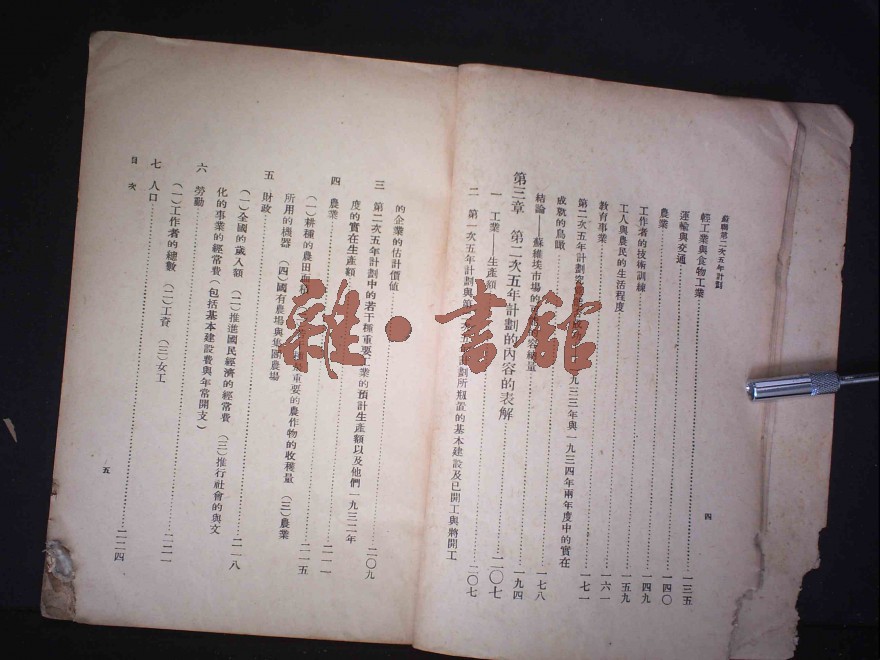 蘇聯第二次五年計劃
四
輕工業與食物工業……一三五
運輸與交通……一四〇
農業……一四九
工作者的技術訓練……一五九
工人與農民的生活程度……一六一
教育事業……一七一
第二次五年計劃 九三三年與一九三四年兩年度中的實在
成就的鳥瞰……一七八
結論——蘇維埃市場的 容納量……一九四
第三章 第二次五年計劃的內容的表解……二〇七
一 工業——生產額……二〇七
二 第一次五年計劃與第二次五年計劃所剏置的基本建設及已開工與將開工
的企業的估計價值……二〇九
三 第二次五年計劃中的若干種重要工業的預計生產額以及他們一九三二年
度的實在生產額……二一一
四 農業
(一)耕種的農田面積 重要的農作物的收穫量 (三)農業
所用的機器 (四)國有農場與集團農場……二一五
五 財政
(一)全國的歲入額 (二)推進國民經濟的經常費 (三)推行社會的與文
化的事業的經常費(包括基本建設費與年常開支)……二一八
六 勞動
(一)工作者的總數 (二)工資 (三)女工……二二一
七 人口……二二四
目次
五
雜·書館